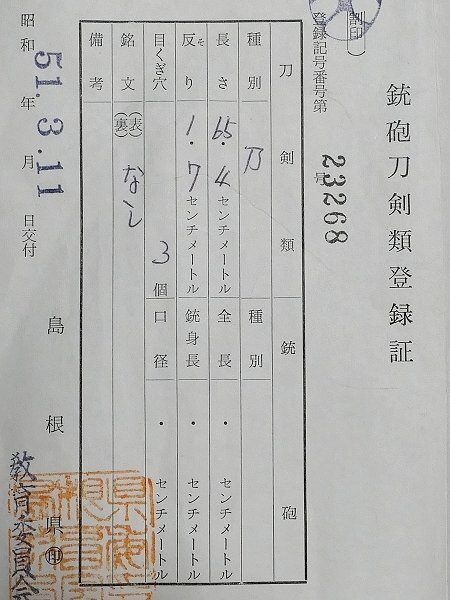 銃砲刀剣類登録証
(割印)
登録記号番号第 23268 号
刀剣類 銃砲
種別 刀 種別
長さ 65.4センチメートル 全長 ・ センチメートル
反り 1.7センチメートル 銃身長 ・ センチメートル
そ
目くぎ穴 3個 口径 ・ センチメートル
銘文 (表) (裏) なし
備考
昭和51年3月11日交付
島根県㊞
教育委員会